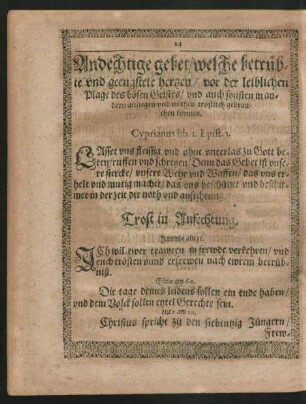 14
Andechtige gebet/ welche betrüb-
te vnd geengstete hertzen/ vor der leiblichen
Plage des bösen Geistes/ vnd auch sonsten in an-
dern anligen vnd nöthen tröstlich gebrau-
chen können.
Cyprianus lib. 1. Epist. 1.
LAsset vns fleissig vnd ohne vnterlas zu Gott be-
ten/ ruffen vnd schreyen/ Denn das Gebet ist vnse-
re stercke/ vnsere Wehr vnd Waffen/ das vns er-
helt vnd mutig machet/ das vns beschützet vnd beschir-
met in der zeit der noth vnd anfechtung.
Trost in Anfechtung.
ICh wil ewer trawren in frewde verkehren/ vnd
euch trösten vnnd erfrewen nach ewrem betrüb-
niß.
Esaiæ am 60.
Die tage deines leidens sollen ein ende haben/
vnd dein Volck sollen eytel Gerechte sein.
Lucæ am 10.
Christus spricht zu den siebentzig Jüngern/
Frew-